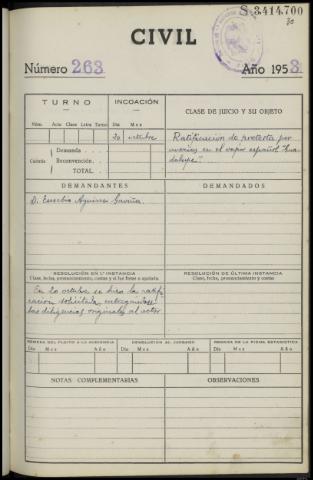 S 3.414.700
CIVIL
Número 263 Año 1953
TURNO
INCOACIÓN
CLASE DE JUICIO Y SU OBJETO
Núm. Auto Clase Letra Turno
Día Mes
20 octubre
Ratificación de protesta por
averías en el vapor español "Gua-
dalupe".
Cuantía
Demanda
Reconvención
TOTAL
DEMANDANTES
DEMANDADOS
D. Eusebio Aguirre
RESOLUCIÓN EN 1ª INSTANCIA
Clase, fecha, pronunciamiento, costas y si fué firme o apelada
RESOLUCIÓN DE ÚLTIMA INSTANCIA
Clase, fecha, pronunciamiento y costas
En 20 octubre se hizo la ratifi-
cación solicitada, entregándose
las diligencias originales al actor
REMESA DEL PLEITO A LA AUDIENCIA
DEVOLUCIÓN AL JUZGADO
REMESA DE LA FICHA ESTADÍSTICA
Día Mes Año
Día Mes Año
Día Mes Año
NOTAS COMPLEMENTARIAS
OBSERVACIONES